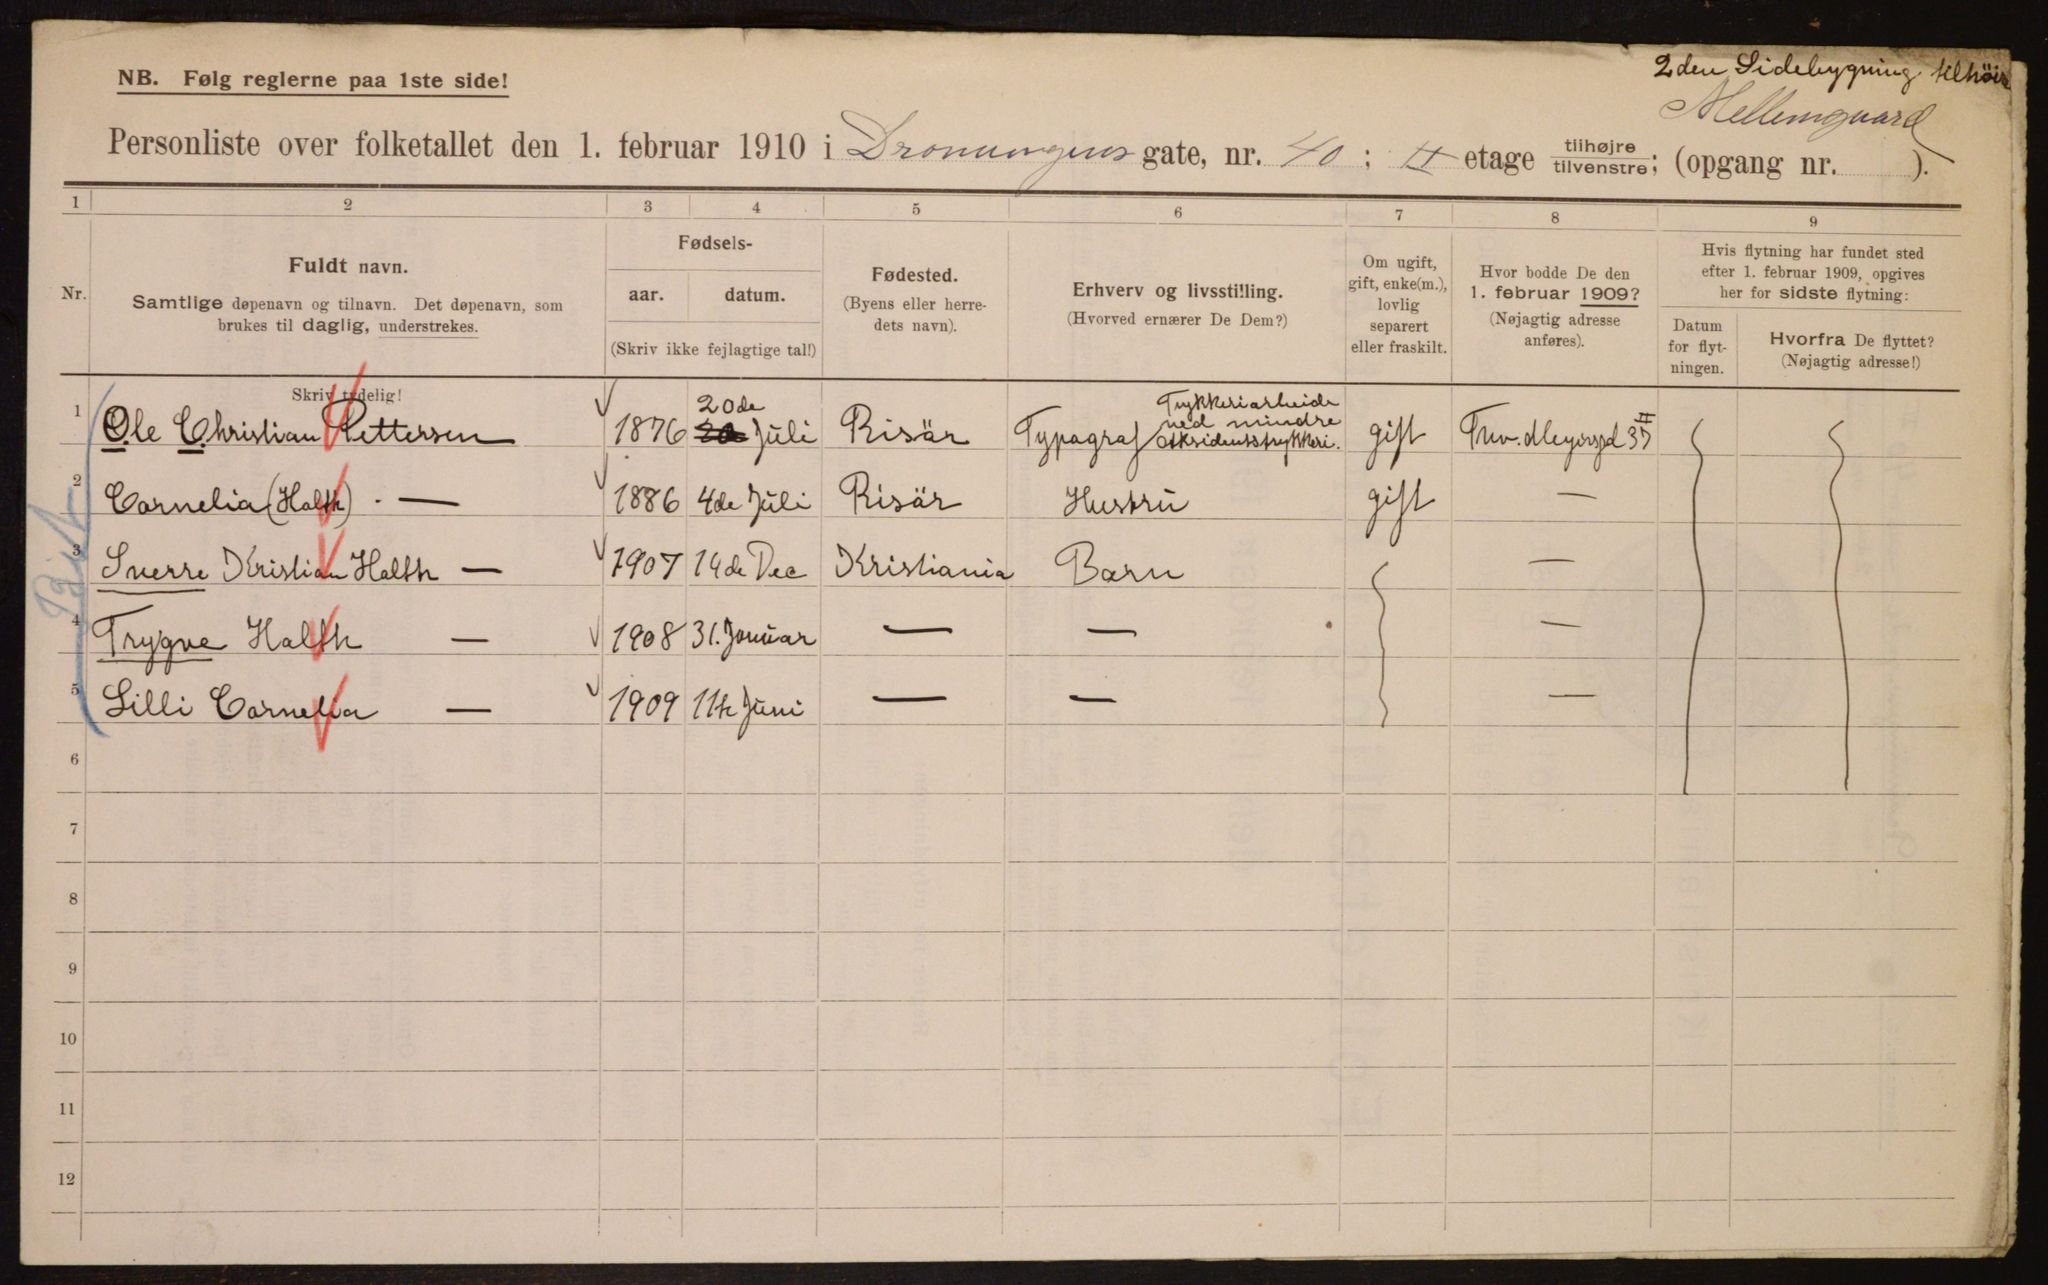 2den Sidebygning tilhöir
NB. Følg reglerne paa 1ste side!
Mellemgaard
Personliste over folketallet den 1. februar 1910 i Dronningens gate, nr. 40; II etage tilhøjre/tilvenstre; (opgang nr. ).
1 2 3 4 5 6 7 8 9
Nr.
Fuldt navn.
Samtlige døpenavn og tilnavn. Det døpenavn, som
brukes til daglig, understrekes.
Fødsels-
aar. datum.
(Skriv ikke fejlagtige tal!)
Fødested.
(Byens eller herre-
dets navn).
Erhverv og livsstilling.
(Hvorved ernærer De Dem?)
Om ugift,
gift, enke(m.),
lovlig
separert
eller fraskilt.
Hvor bodde De den
1. februar 1909?
(Nøjagtig adresse
anføres).
Hvis flytning har fundet sted
efter 1. februar 1909, opgives
her for sidste flytning:
Datum
for flyt-
ningen.
Hvorfra De flyttet?
(Nøjagtig adresse!)
Skriv tydelig!
1 Ole Christian Pettersen 1876 20de Juli Risär Typagraf Trykkeriarbeide ved mindre gift 37 II
2 Cornelia (Halth) . — 1886 4de Juli Risär Hustru gift —
3 Sverre Kristian Halth — 1907 14de Dec Kristiania Barn —
4 Trygve Halth — 1908 31. Januar — — —
5 Lilli Cornelia — 1909 11te Juni — — —
6
7
8
9
10
11
12